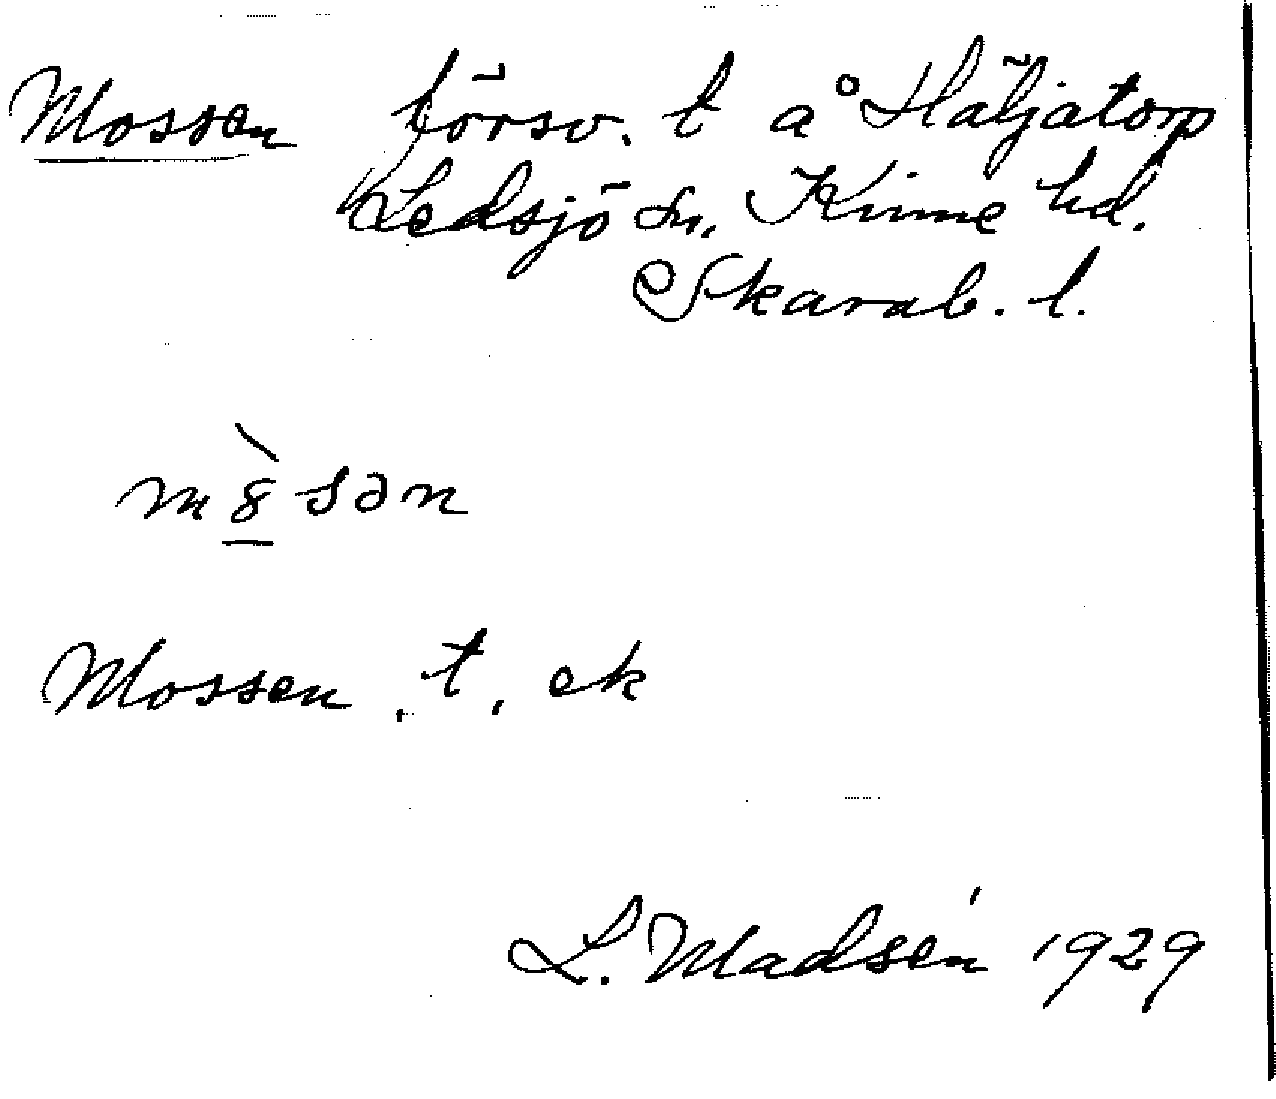 Mossen försv. t å Häljatorp
Ledsjö sn, Kinne hd.
Skarab. l.
m8̀sən
Mossen, t, ek
L. Madsén 1929